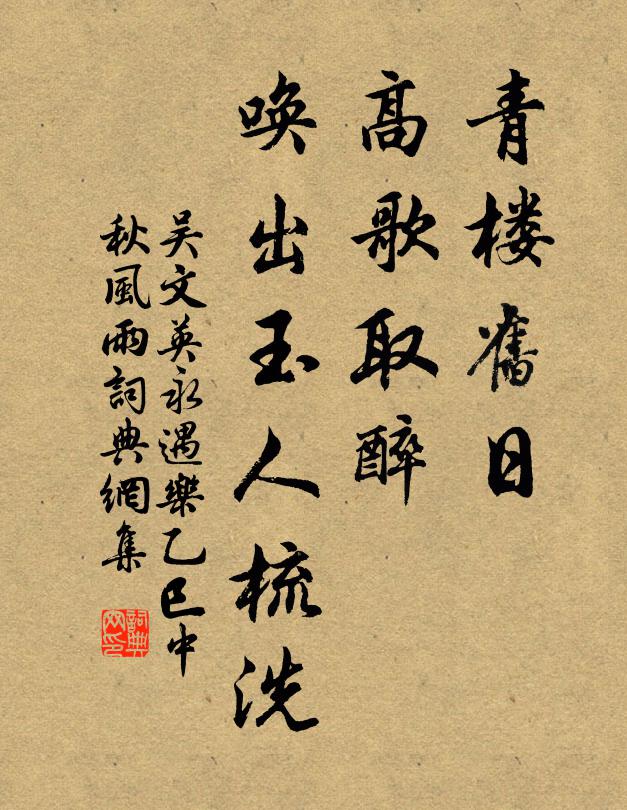 青楼舊日
高歌取醉
唤出玉人梳洗
吴文英永遇樂乙巳中
秋風雨詞典網集
詞典
网印